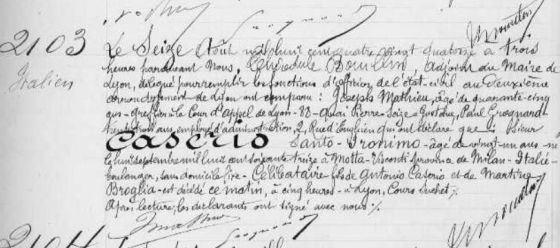 2103
Italien
Le Seize Août mil huit cent quatre vingt quatorze à trois
heures par devant Nous, Boulin, adjoint du Maire de
Lyon, délégué pour remplir les fonctions d'officier de l'état-civil au Deuxième
arrondissement de Lyon ont comparu : Joseph Mathieu, âgé de quarante-cinq
ans - Greffier à la Cour d'Appel de Lyon - 82 - Quai Pierre-Scize - Gustave, Paul Grognard
ans, employé d'administration, 2, Rue qui ont déclaré que le Sieur
Caserio Santo-Ironimo - âgé de vingt-un ans - né
le huit septembre mil huit cent soixante treize à Motta-Visconti province de Milan - Italie
boulanger, sans domicile fixe - Célibataire - fils de Antonio Caserio et de Martina
Broglia - est décédé ce matin, à cinq heures - à Lyon, Cours
Après lecture, les déclarants ont signé avec nous